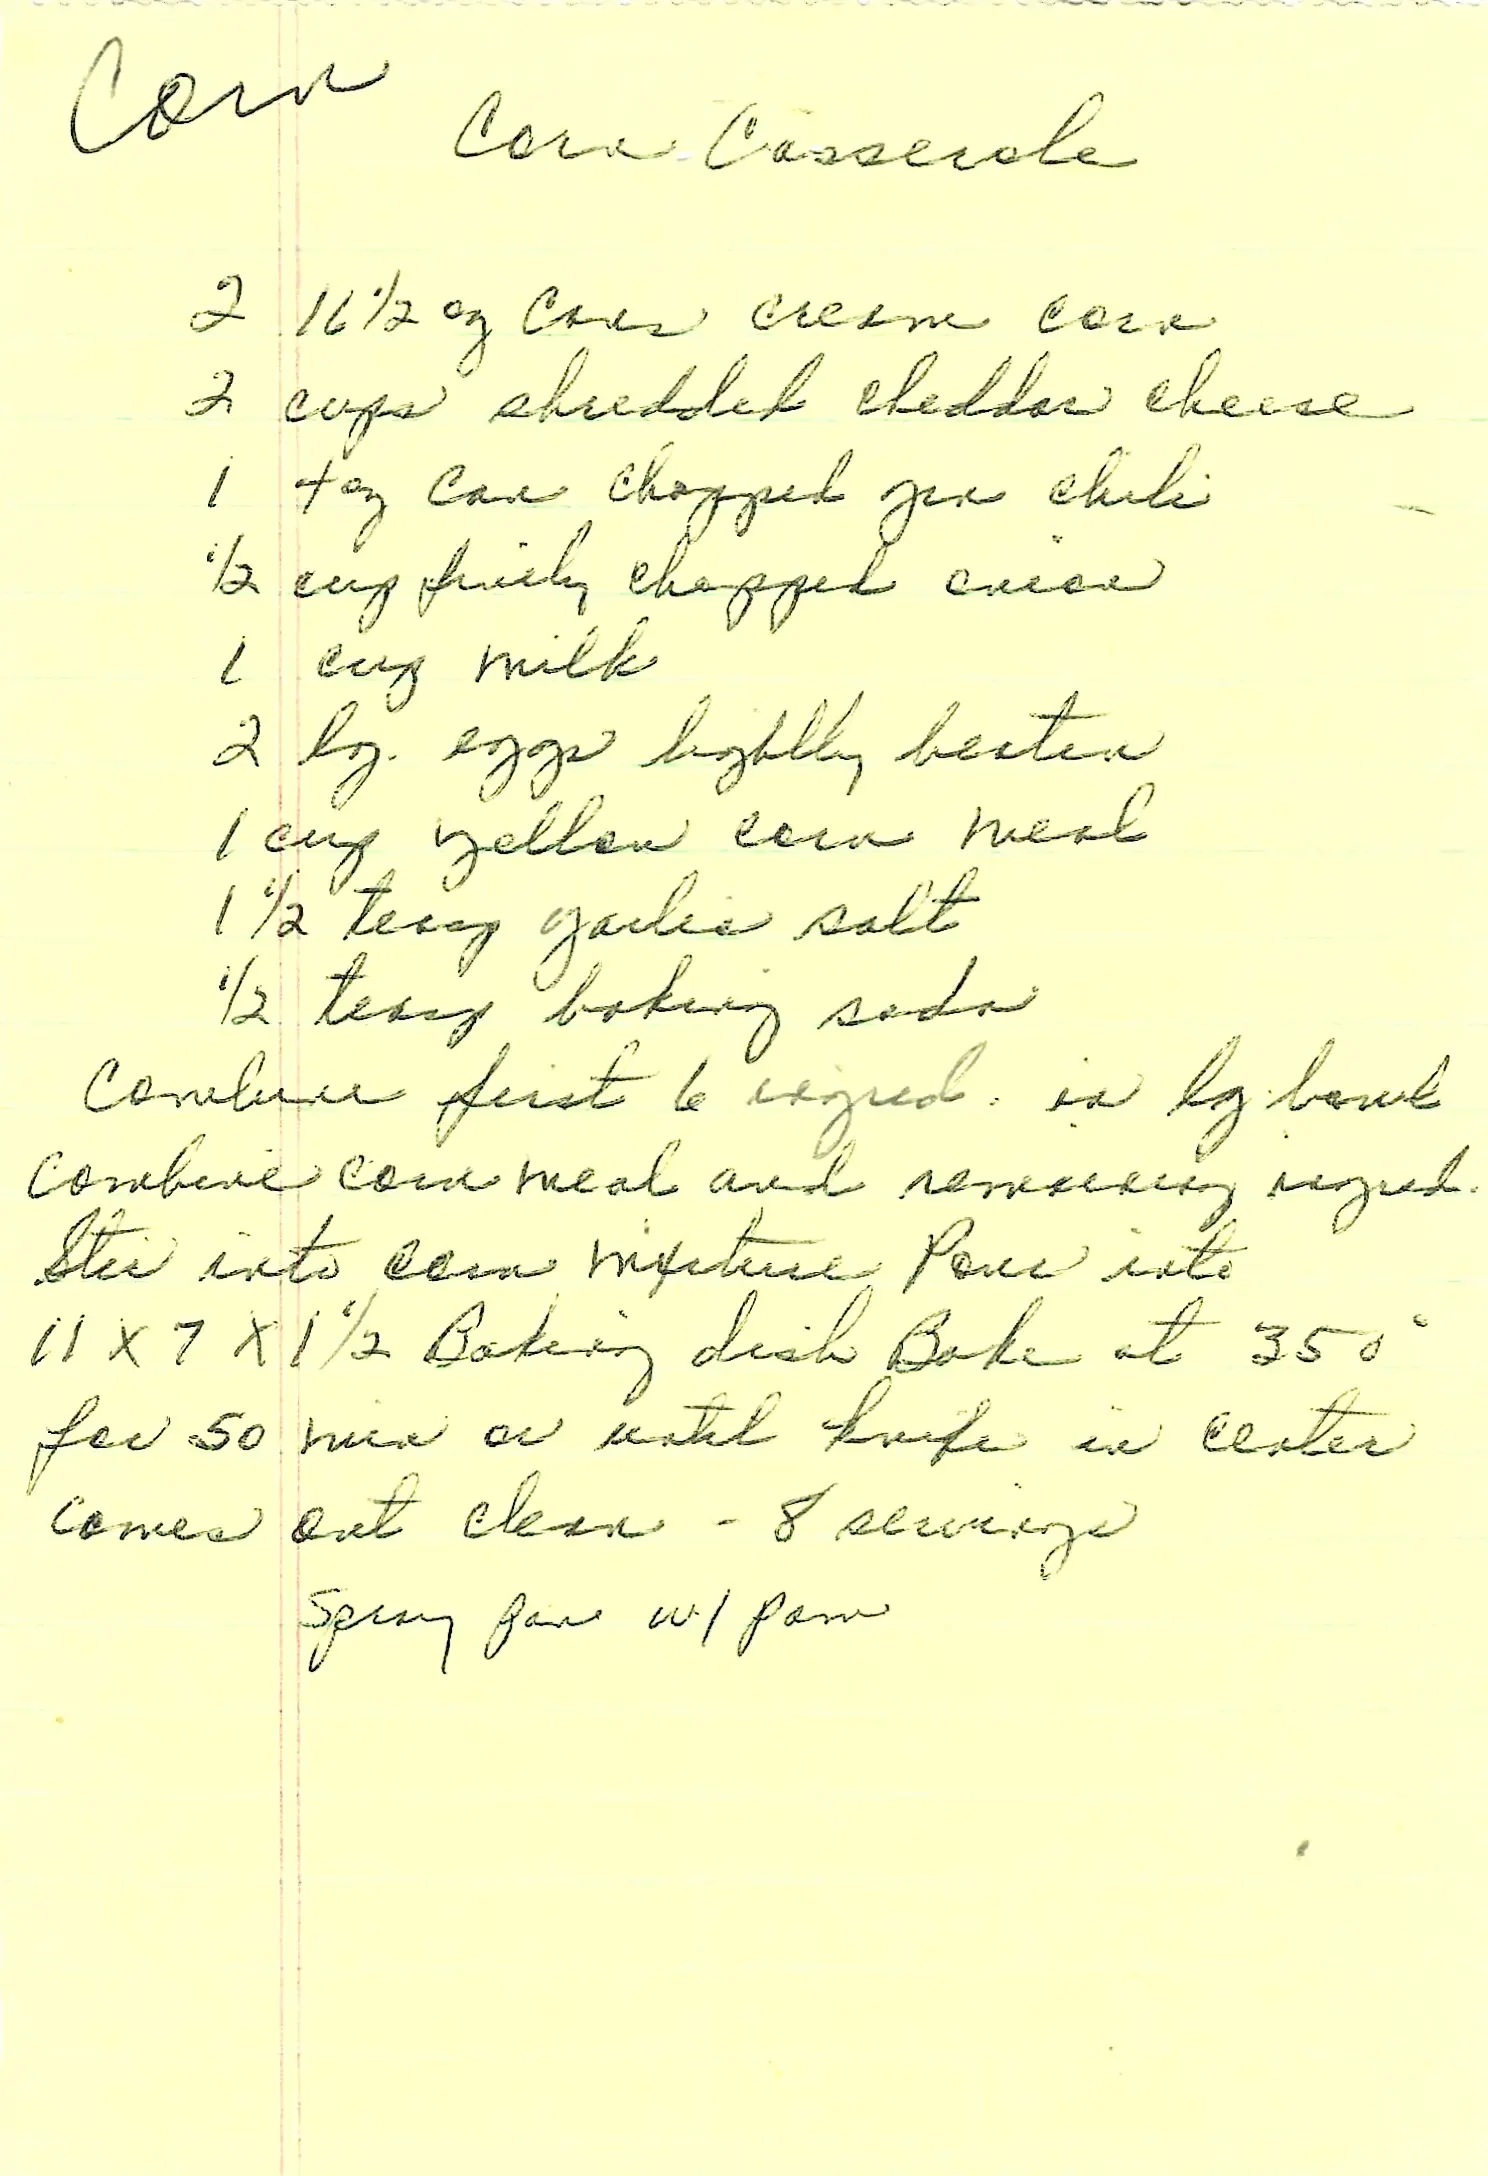 Corn
Corn Casserole
2 16 1/2 oz Cans cream corn
2 cups shredded cheddar cheese
1 4 oz Can Chopped grn chili
1/2 cup finely chopped onion
1 cup milk
2 lg. eggs lightly beaten
1 cup yellow corn meal
1 1/2 teasp garlic salt
1/2 teasp baking soda
Combine first 6 ingred. in lg bowl
Combine corn meal and remaining ingred.
Stir into corn mixture Pour into
11 X 7 X 1 1/2 Baking dish Bake at 350°
for 50 min or until knife in center
comes out clean - 8 servings
Spray pan w/ pam